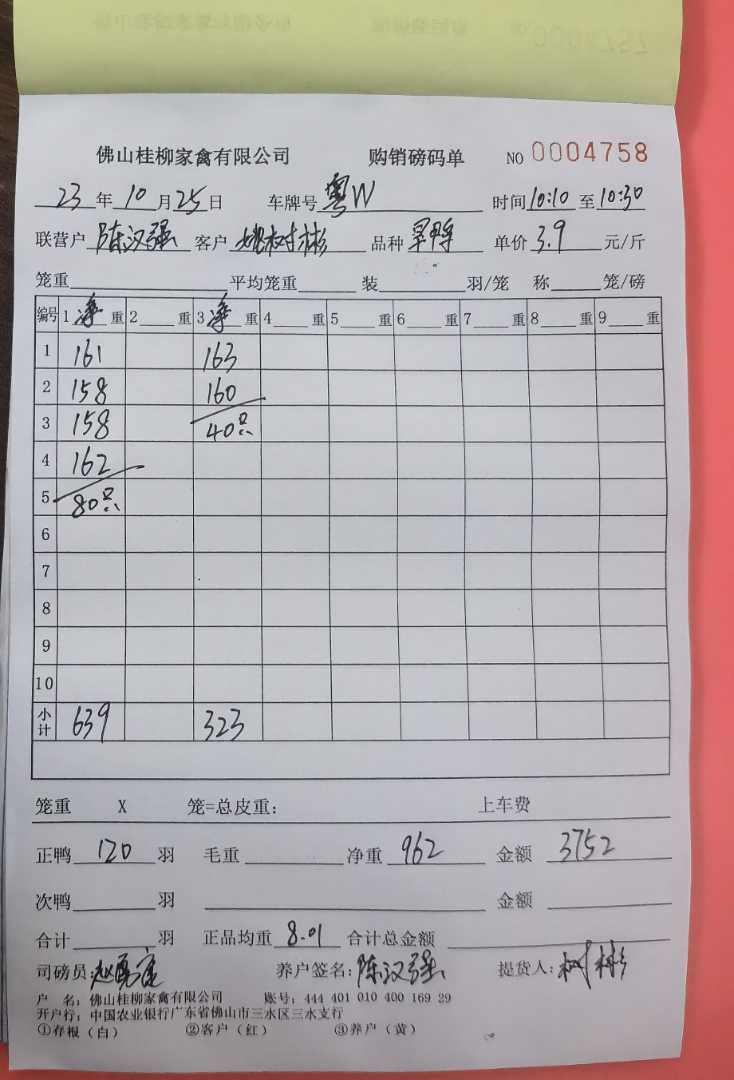 佛山桂柳家禽有限公司 购销磅码单 NO 0004758
23年10月25日 车牌号 粤W 时间10:10至10:30
联营户 陈汉强 客户 姚树彬 品种 旱鸭 单价 3.9 元/斤
笼重 平均笼重 装 羽/笼 称 笼/磅
编号 1 净 重 2 重 3 净 重 4 重 5 重 6 重 7 重 8 重 9 重
1 161 163
2 158 160
3 158 40只
4 162
5 80只
6
7
8
9
10
小计 639 323
笼重 X 笼=总皮重: 上车费
正鸭 120 羽 毛重 净重 962 金额 3752
次鸭 羽 金额
合计 羽 正品均重 8.01 合计总金额
司磅员: 养户签名: 陈汉强 提货人: 树彬
户 名: 佛山桂柳家禽有限公司 账号: 444 401 010 400 169 29
开户行: 中国农业银行广东省佛山市三水区三水支行
①存根(白) ②客户(红) ③养户(黄)